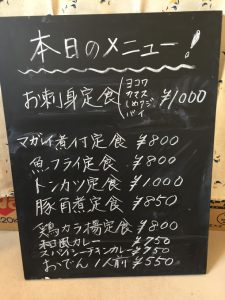 本日のメニュー!
お刺身定食(ヨコワ カマス しめアジ バイ) ¥1000
マガレイ煮付定食 ¥800
魚フライ定食 ¥800
トンカツ定食 ¥1.000
豚角煮定食 ¥850
鶏カラ揚定食 ¥800
和風カレー ¥750
スパイシーチキンカレー ¥750
おでん 1人前 ¥550